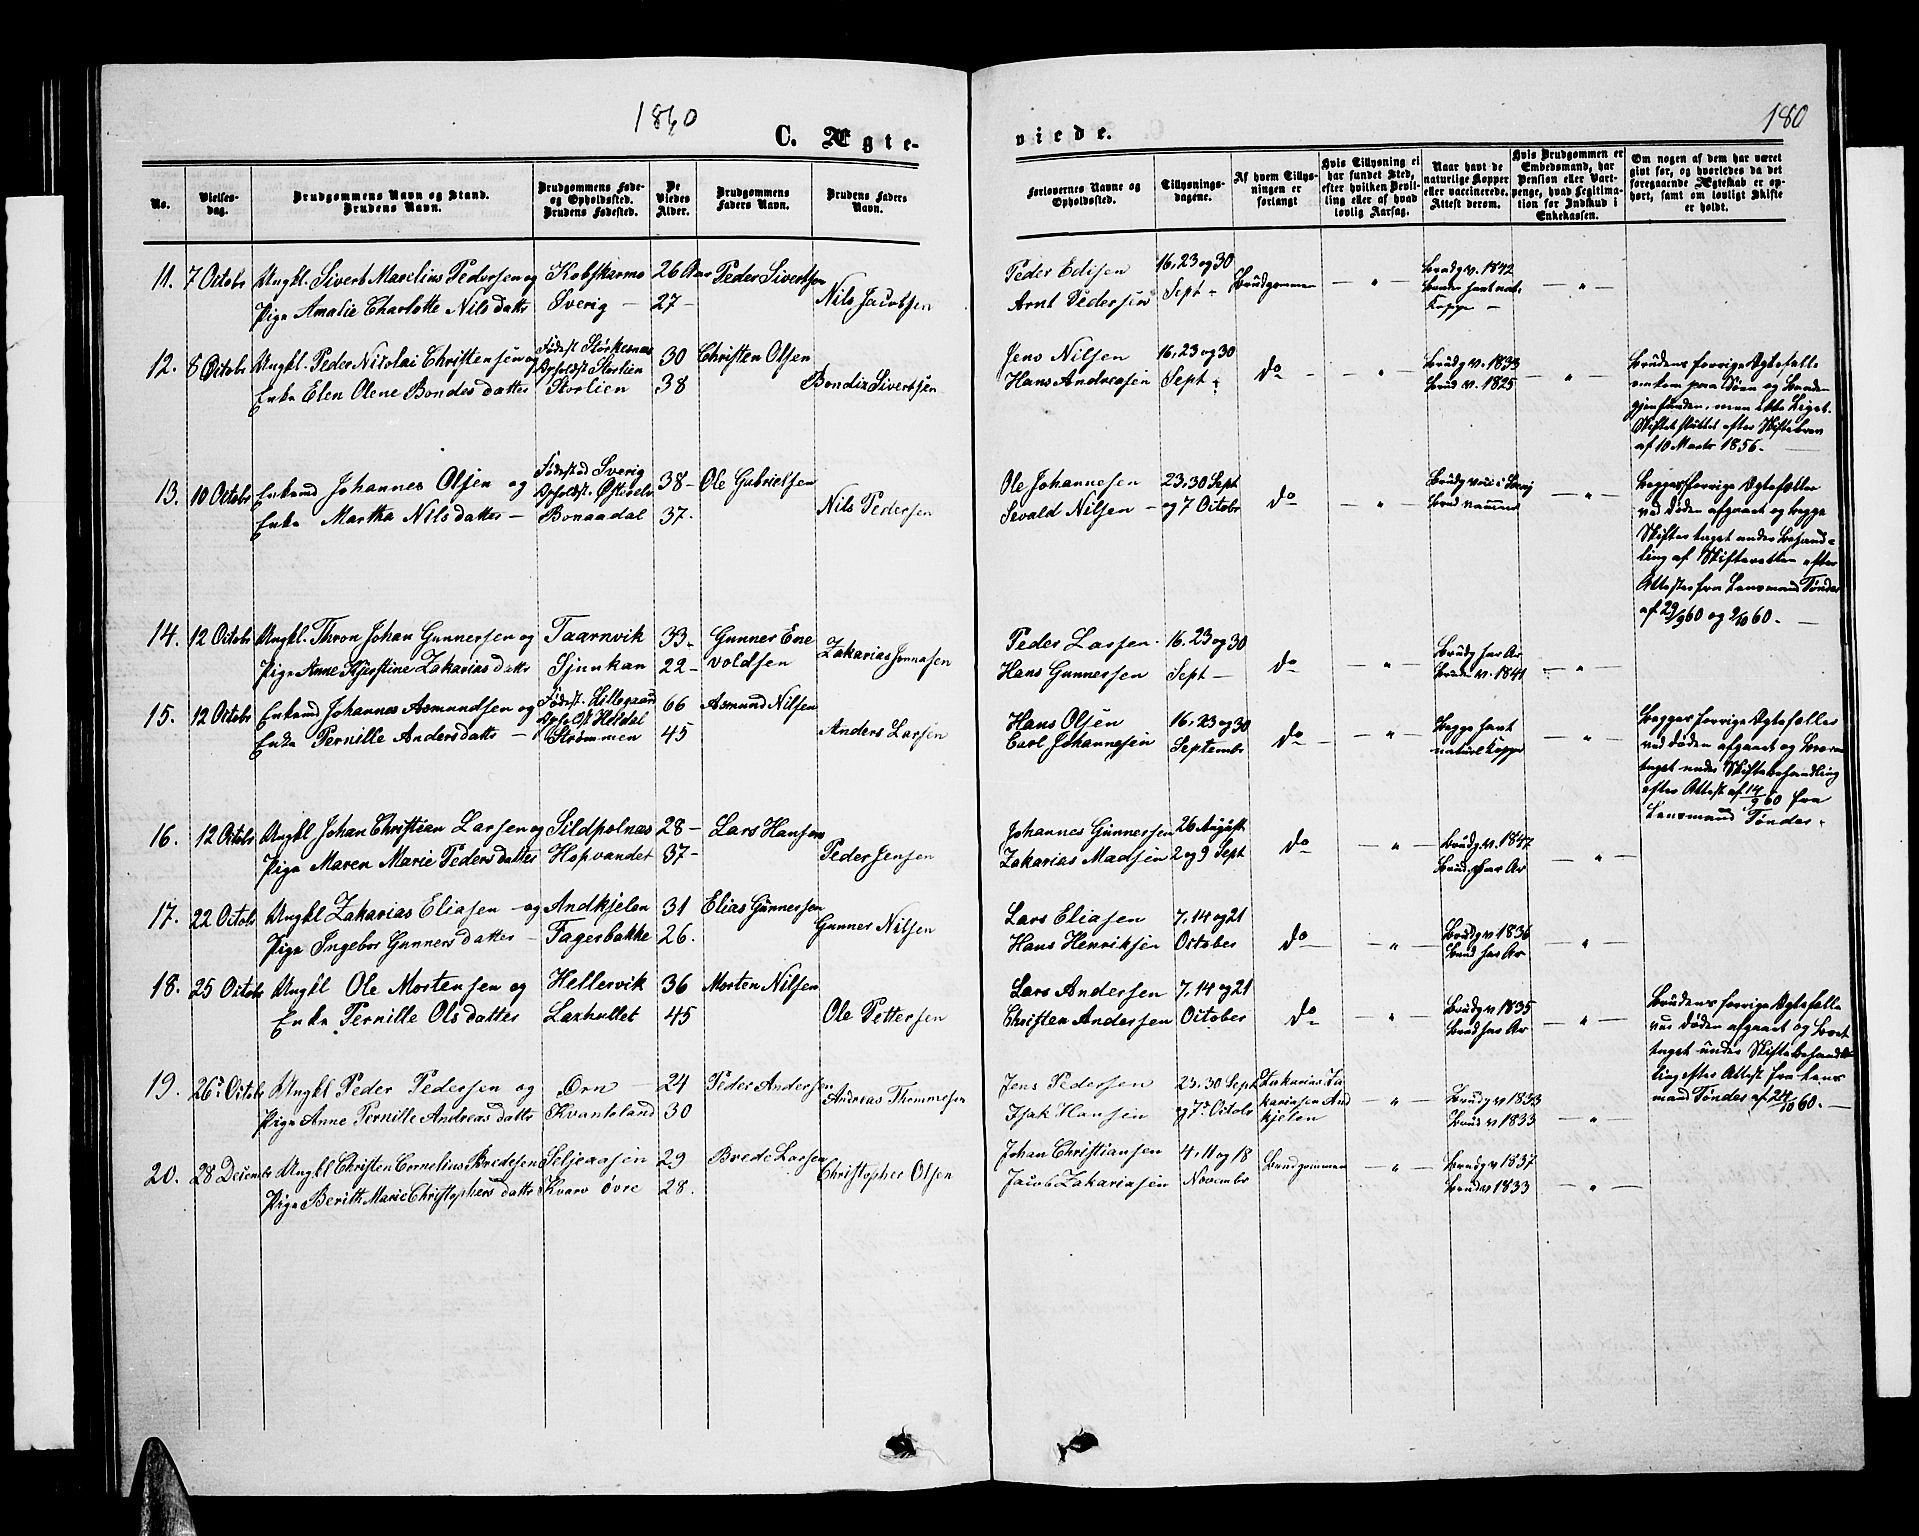 1860
180
C. Ægte-
viede.
No.
Vielses-
dag.
Brudgommens Navn og Stand.
Brudens Navn.
Brudgommens Føde-
og Opholdssted.
Brudens Fødested.
De
Viedes
Alder.
Brudgommens
Faders Navn.
Brudens Faders
Navn.
Forlovernes Navne og
Opholdssted.
Tillysnings-
dagene.
Af hvem Tillys-
ningen er
forlangt
Hvis Tillysning ei
har fundet Sted,
efter hvilken Bevil-
ling eller af hvad
lovlig Aarsag.
Naar havt de
naturlige Kopper
eller vaccinerede.
Attest derom.
Hvis Brudgommen er
Embedsmand, har
Pension eller Vart-
penge, hvad Legitima-
tion for Indskud i
Enkekassen.
Om nogen af dem har været
givt før, og hvorledes da det
foregaaende Ægteskab er op-
hørt, samt om lovligt Skifte
er holdt.
11. 7 Octobr Ungkl. Sivert Marelius Pedersen og Kobskarmo 26 Aar Peder Sivertsen
Pige Amalie Charlotte Nilsdatter Sverig — 27 — Nils Jacobsen
Peder Edisen 16, 23 og 30 Brudgommen — " — Brudg v. 1842 — " —
Arnt Pedersen Sept — Bruden havt nat.
Kopper —
12. 8 Octobr Ungkl. Peder Nikolai Christensen og Fødest Storkesnæs 30 Christen Olsen
Opholdst Storlien
Enke Elen Olene Bondesdatter Storlien 38 Bondiz Sivertsen
Jens Nilsen 16, 23 og 30 do — " — Brudg v. 1833 — " — Brudens forrige Ægtefælle
Hans Andreasen Sept — Brud v. 1825 omkom paa Søen og Baaden
gjenfunden, men ikke Liget.
Skiftet sluttet efter Skiftebrev
af 10 Marts 1856. —
13. 10 Octobr Enkemd Johannes Olsen og Fødested Sverig 38 — Ole Gabrielsen
Enke Martha Nilsdatter — Bonaadal 37. Nils Pedersen
Ole Johannesen 23, 30 Sept do — " — — " — Begges forrige Ægtefæller
Sevald Nilsen — og 7 Octobr ved Døden afgaaet og begge
Skifter taget under Behand=
ling af Skifteretten efter
Attester fra Lensmand Tønder
af 29/9 60 og 2/10 60. —
14. 12 Octobr Ungkl. Thron Johan Gunnersen og Taarnvik 33. Gunner Ene
Pige Anne Kjerstine Zakariasdatter Sjunkan 22 — voldsen Zakarias Jonnasen
Peder Larsen 16. 23 og 30 do — " — Brudg har Ar — " —
Hans Gunnersen Sept — Bruden v. 1841
15. 12 Octobr Enkemd Johannes Asmundsen og Fødest. Littegaard 66 Asmund Nilsen
Opholdst Heldal
Enke Pernille Andersdatter — Strømmen 45 Anders Larsen
Hans Olsen 16, 23 og 30 do — " — Begge havt — " — Begges forrige Ægtefæller
Carl Johannesen Septembr naturl Kopper ved Døden afgaaet og Boerne
taget under Skiftebehandling
efter Attest af 14/9 60 fra
Lensmand Tønder.
16. 12 Octobr Ungkl Johan Christian Larsen og Sildpolnæs 28 — Lars Hansen
Pige Maren Marie Pedersdatter Hopvandet 37 — Peder Jensen
Johannes Gunnersen 26 August do — " — Brudg v. 1847 — " —
Zakarias Madsen 2 og 9 Sept Brud har Ar
17. 22 Octobr Ungkl Zakarias Eliasen — og Andkjelen 31 Elias Gunnersen
Pige Ingebor Gunnersdatter — Fagerbakke 26. Gunner Nilsen
Lars Eliasen 7, 14 og 21 do — " — Brudg v 1836 — " —
Hans Henriksen October Brud har Ar
18. 25 Octobr Ungkl Ole Mortensen og Hellervik 36 Morten Nilsen
Enke Pernille Olsdatter Laxhullet 45 Ole Pettersen
Lars Andersen 7, 14 og 21 do — " — Brudg v 1835 — " — Brudens forrige Ægtefælle
Christen Andersen October Brud har Ar ved Døden afgaaet og Boet
taget under Skiftebehand
ling efter Attest fra Lens
mand Tønder af 24/10 60. —
19. 26. Octobr Ungkl Peder Pedersen og Ørn — 24 Peder Andersen
Pige Anne Pernille Andreasdatter Kvanteland 30 Andreas Thommesen
Jens Pedersen 23, 30 Sept Zakarias Za — " — Brudg v 1833 — " —
Isak Hansen og 7 Octobr kariasen And Brud v 1833
kjelen
20. 28 Decembr Ungkl Christen Cornelius Bredesen Seljeaasen 29 Brede Larsen
Pige Berith Marie Christophersdatter Kvarv øvre 28. Christopher Olsen
Johan Christiansen 4, 11 og 18 Brudgommen — " — Brudg v 1837 — " —
Jacob Zakariasen Novembr Brud v 1833